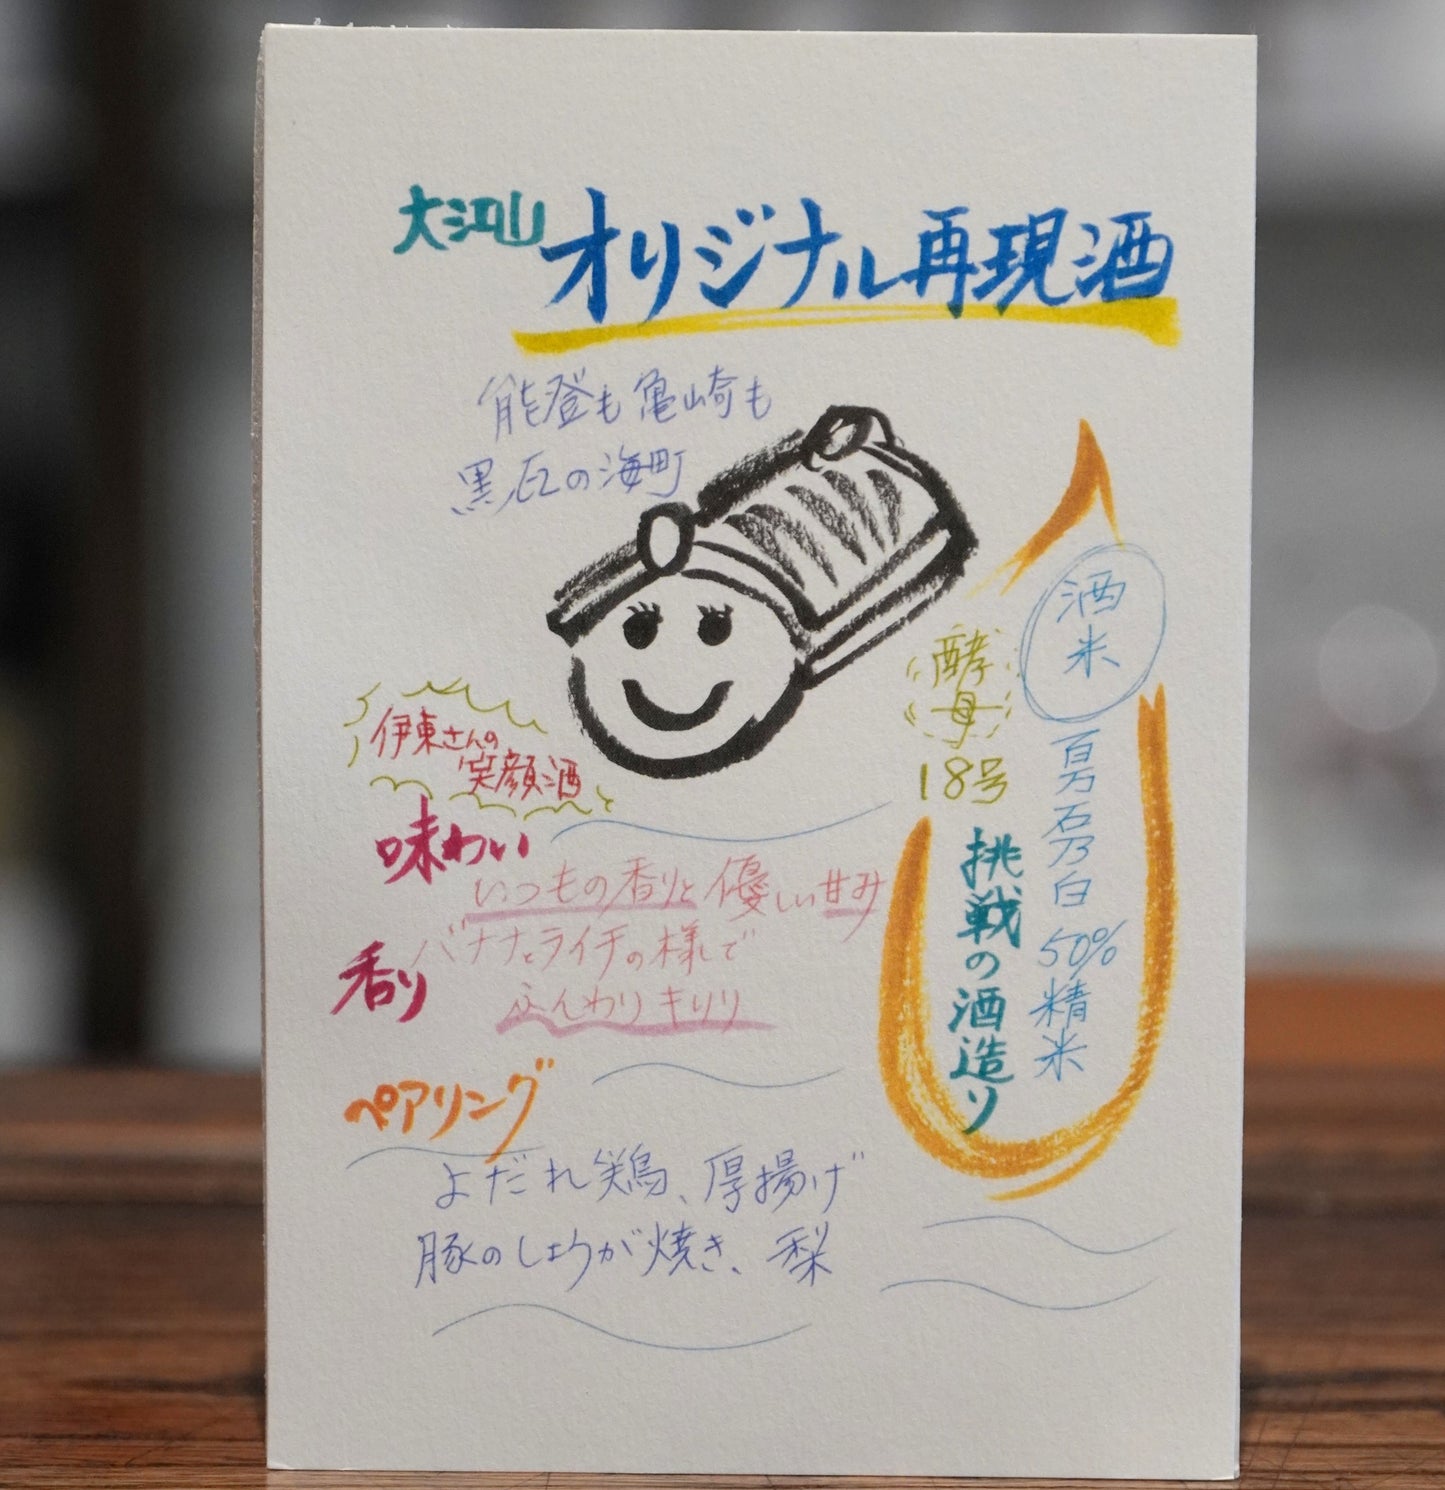 大江山
オリジナル再現酒
能登も亀崎も
黒瓦の海町
酒米
百万石乃白 50%精米
酵母
18号
挑戦の酒造り
伊東さんの
笑顔酒
味わい
いつもの香りと優しい甘み
香り
バナナとライチの様で
ふんわりキリリ
ペアリング
よだれ鶏、厚揚げ
豚のしょうが焼き、梨